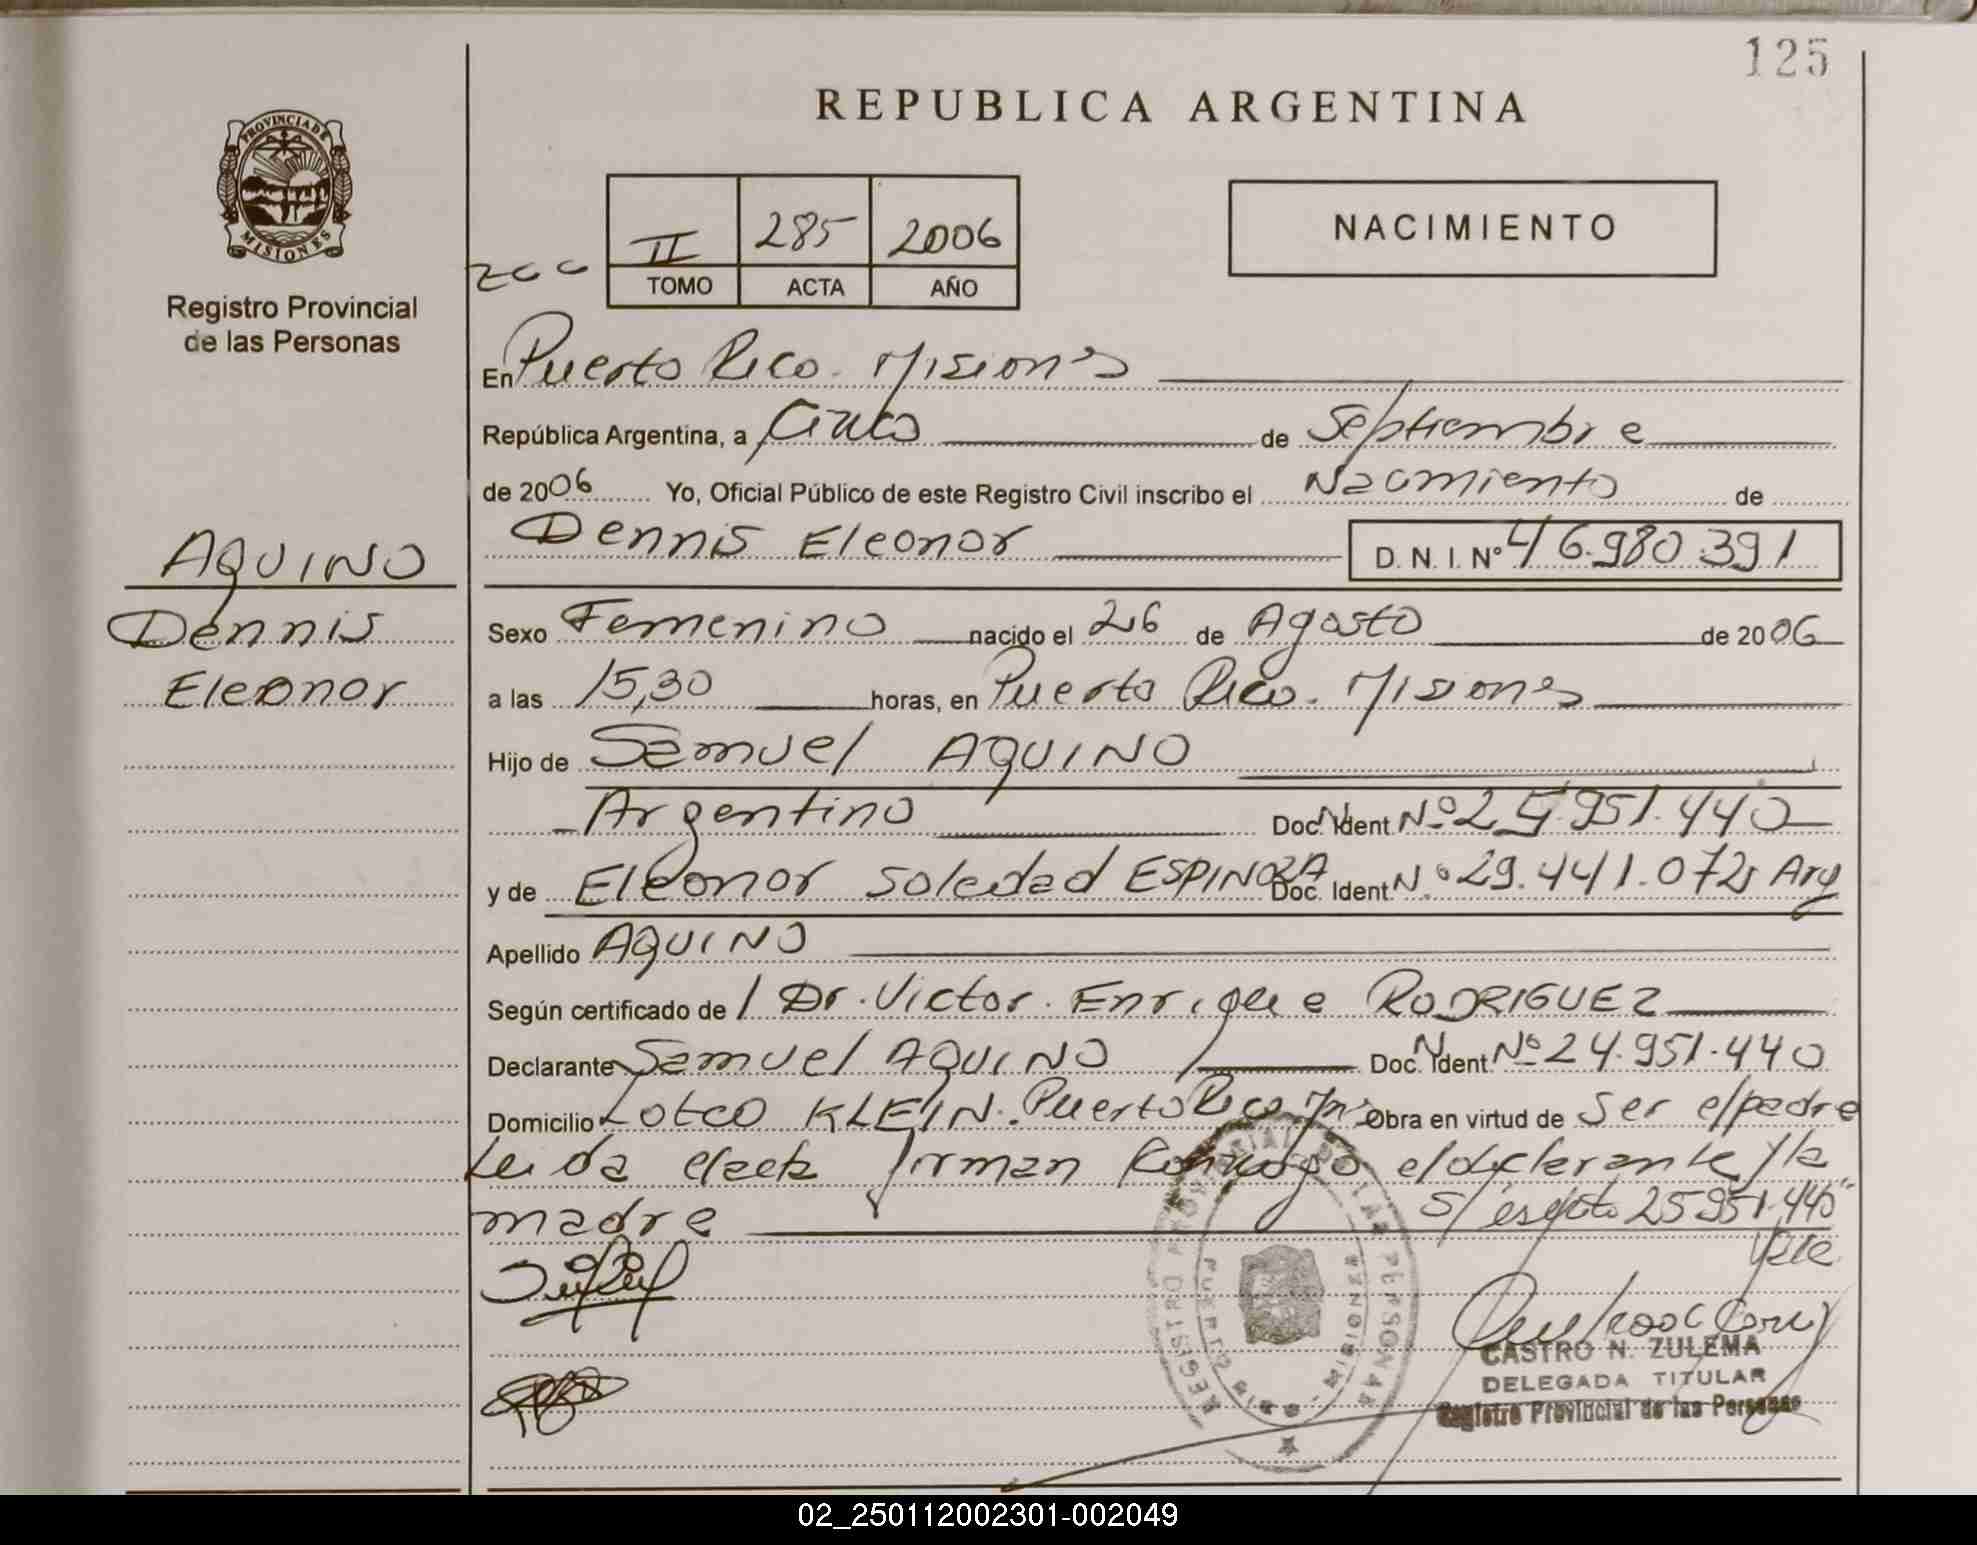 125
REPUBLICA ARGENTINA
PROVINCIA DE
MISIONES
Registro Provincial
de las Personas
II 285 2006
TOMO ACTA AÑO
NACIMIENTO
En Puerto Rico. Misiones
República Argentina, a Cinco de Septiembre
de 2006 Yo, Oficial Público de este Registro Civil inscribo el Nacimiento de
Dennis Eleonor D. N. I. Nº 46.980.391
AQUINO
Dennis
Eleonor
Sexo Femenino nacido el 26 de Agosto de 2006
a las 15,30 horas, en Puerto Rico. Misiones
Hijo de Samuel AQUINO
Argentino Doc. Ident Nº 25.951.440
y de Eleonor Soledad ESPINOZA Doc. Ident N.º 29.441.072 Arg
Apellido AQUINO
Según certificado de Dr. Victor Enrique RODRIGUEZ
Declarante Samuel AQUINO Doc. Ident. Nº 24.951.440
Domicilio Lote KLEIN. Puerto Rico Mns Obra en virtud de Ser el padre
Leida el acta firman Conmigo el declarante y la
madre
25951.440
Vale
REGISTRO PROVINCIAL DE LAS PERSONAS
PUERTO RICO - MISIONES
CASTRO N. ZULEMA
DELEGADA TITULAR
Registro Provincial de las Personas
02_250112002301-002049